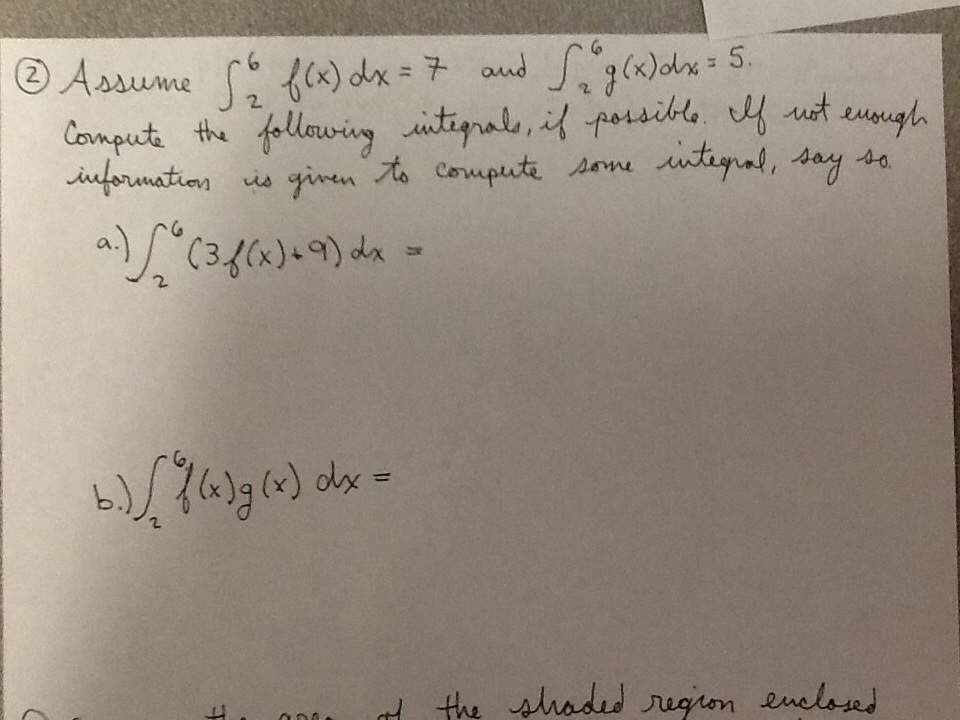 ② Assume ∫₂⁶ f(x) dx = 7 and ∫₂⁶ g(x) dx = 5.
Compute the following integrals, if possible. If not enough
information is given to compute some integral, say so.
a.) ∫₂⁶ (3f(x)+9) dx =
b.) ∫₂⁶ f(x)g(x) dx =
the area of the shaded region enclosed